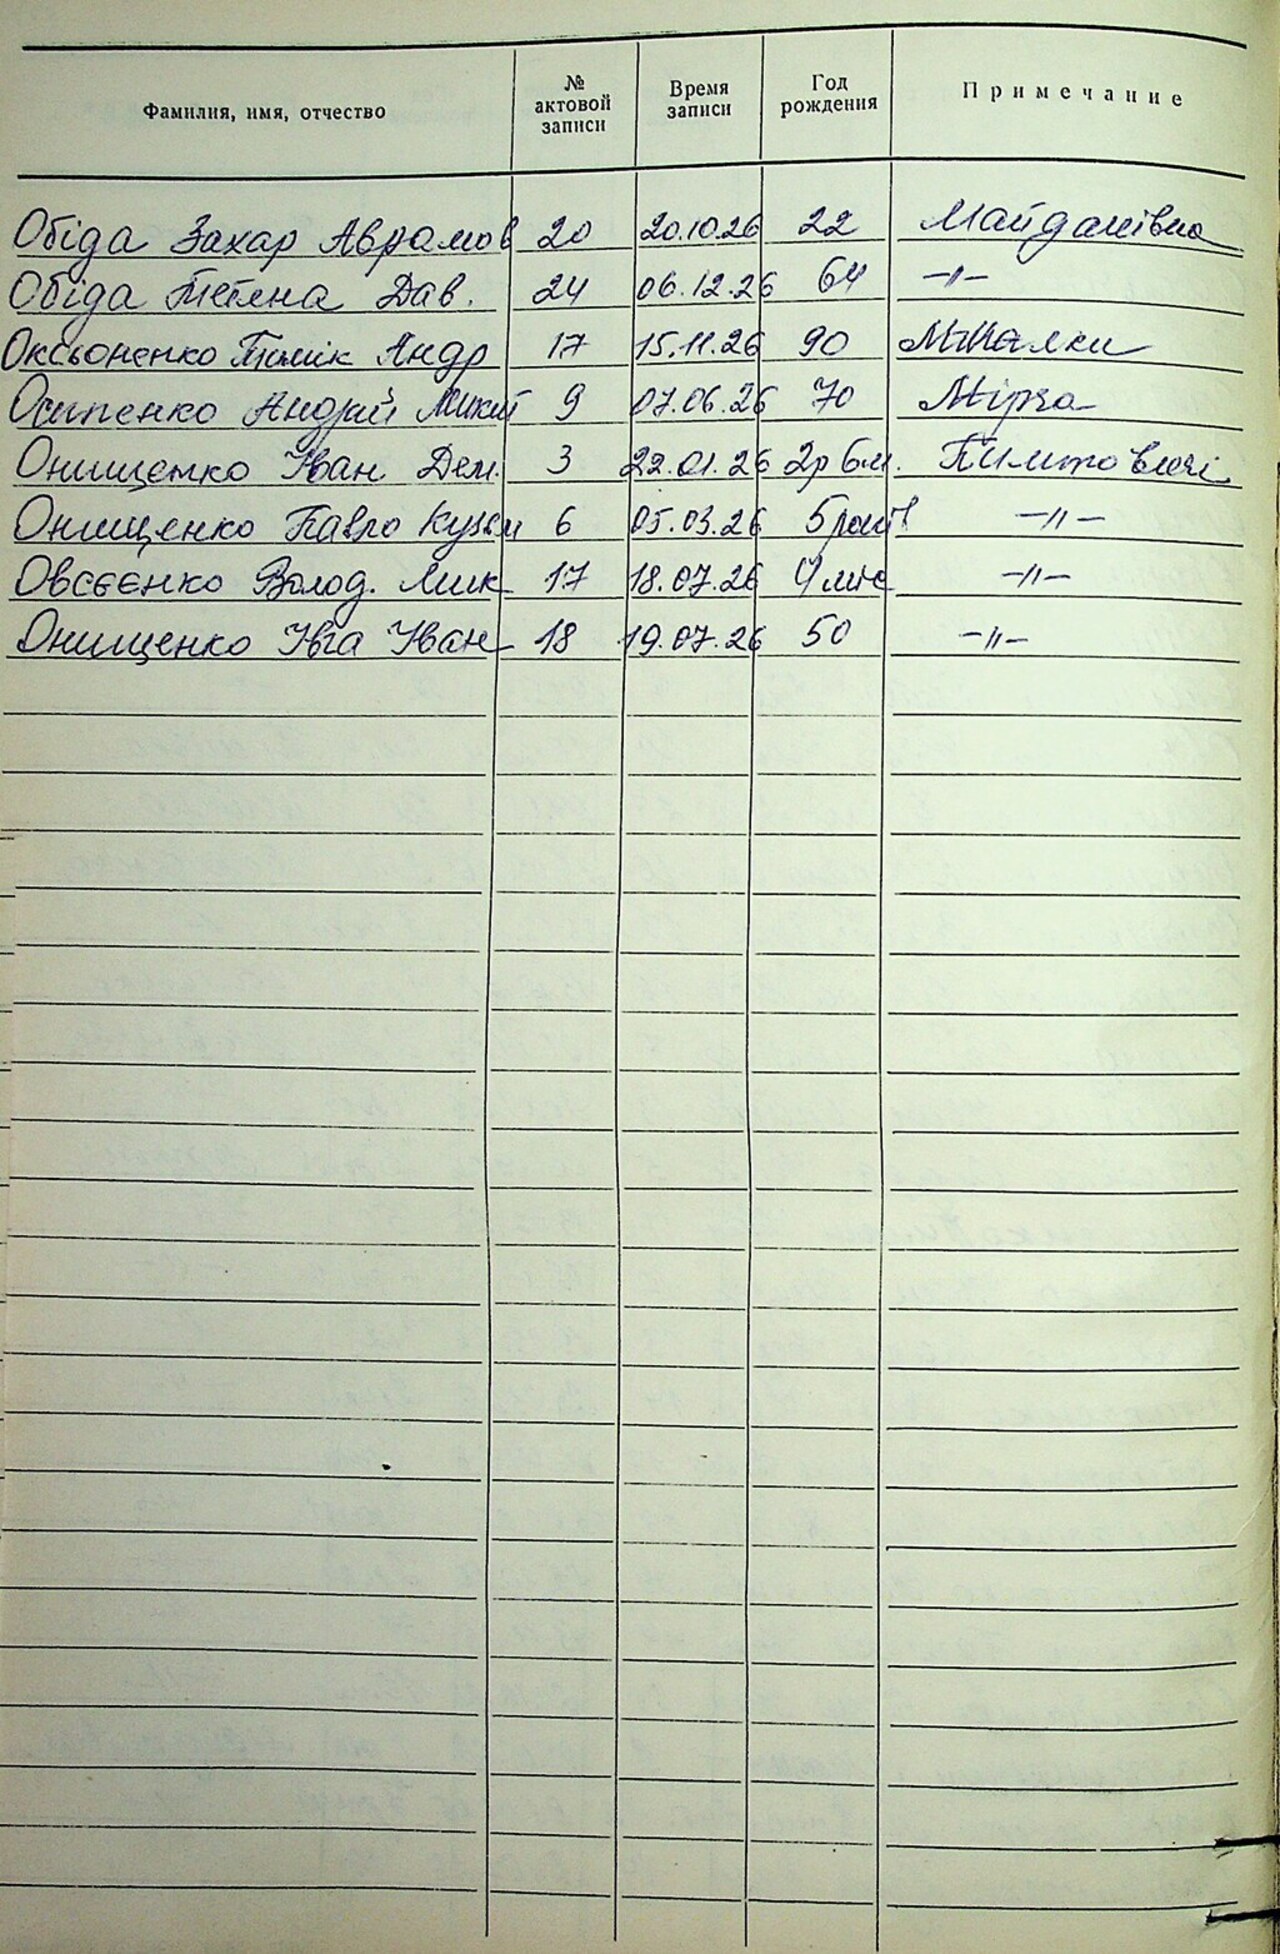 Фамилия, имя, отчество № актовой записи Время записи Год рождения Примечание
Обіда Захар Аврамов 20 20.10.26 22 Майданівка
Обіда Тетяна Дав. 24 06.12.26 64 -//-
Оксьоненко Андр 17 15.11.26 90
Осипенко Андрій Микит 9 07.06.26 70 Мірча
Онищенко Іван Дем. 3 22.01.26 2р 6м. Пилиповичі
Онищенко Павло Кузьм 6 05.03.26 5 років -//-
Овсєєнко Волод. Мик 17 18.07.26 4 міс -//-
Онищенко Івга Іван 18 19.07.26 50 -//-